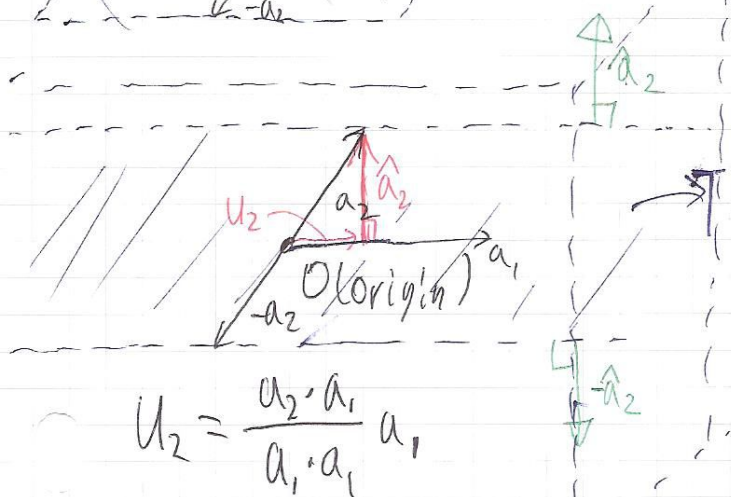 -a₂
â₂
â₂
a₂
u₂
a₁
O(origin)
-a₂
-â₂
u₂ = (a₂·a₁)/(a₁·a₁) a₁